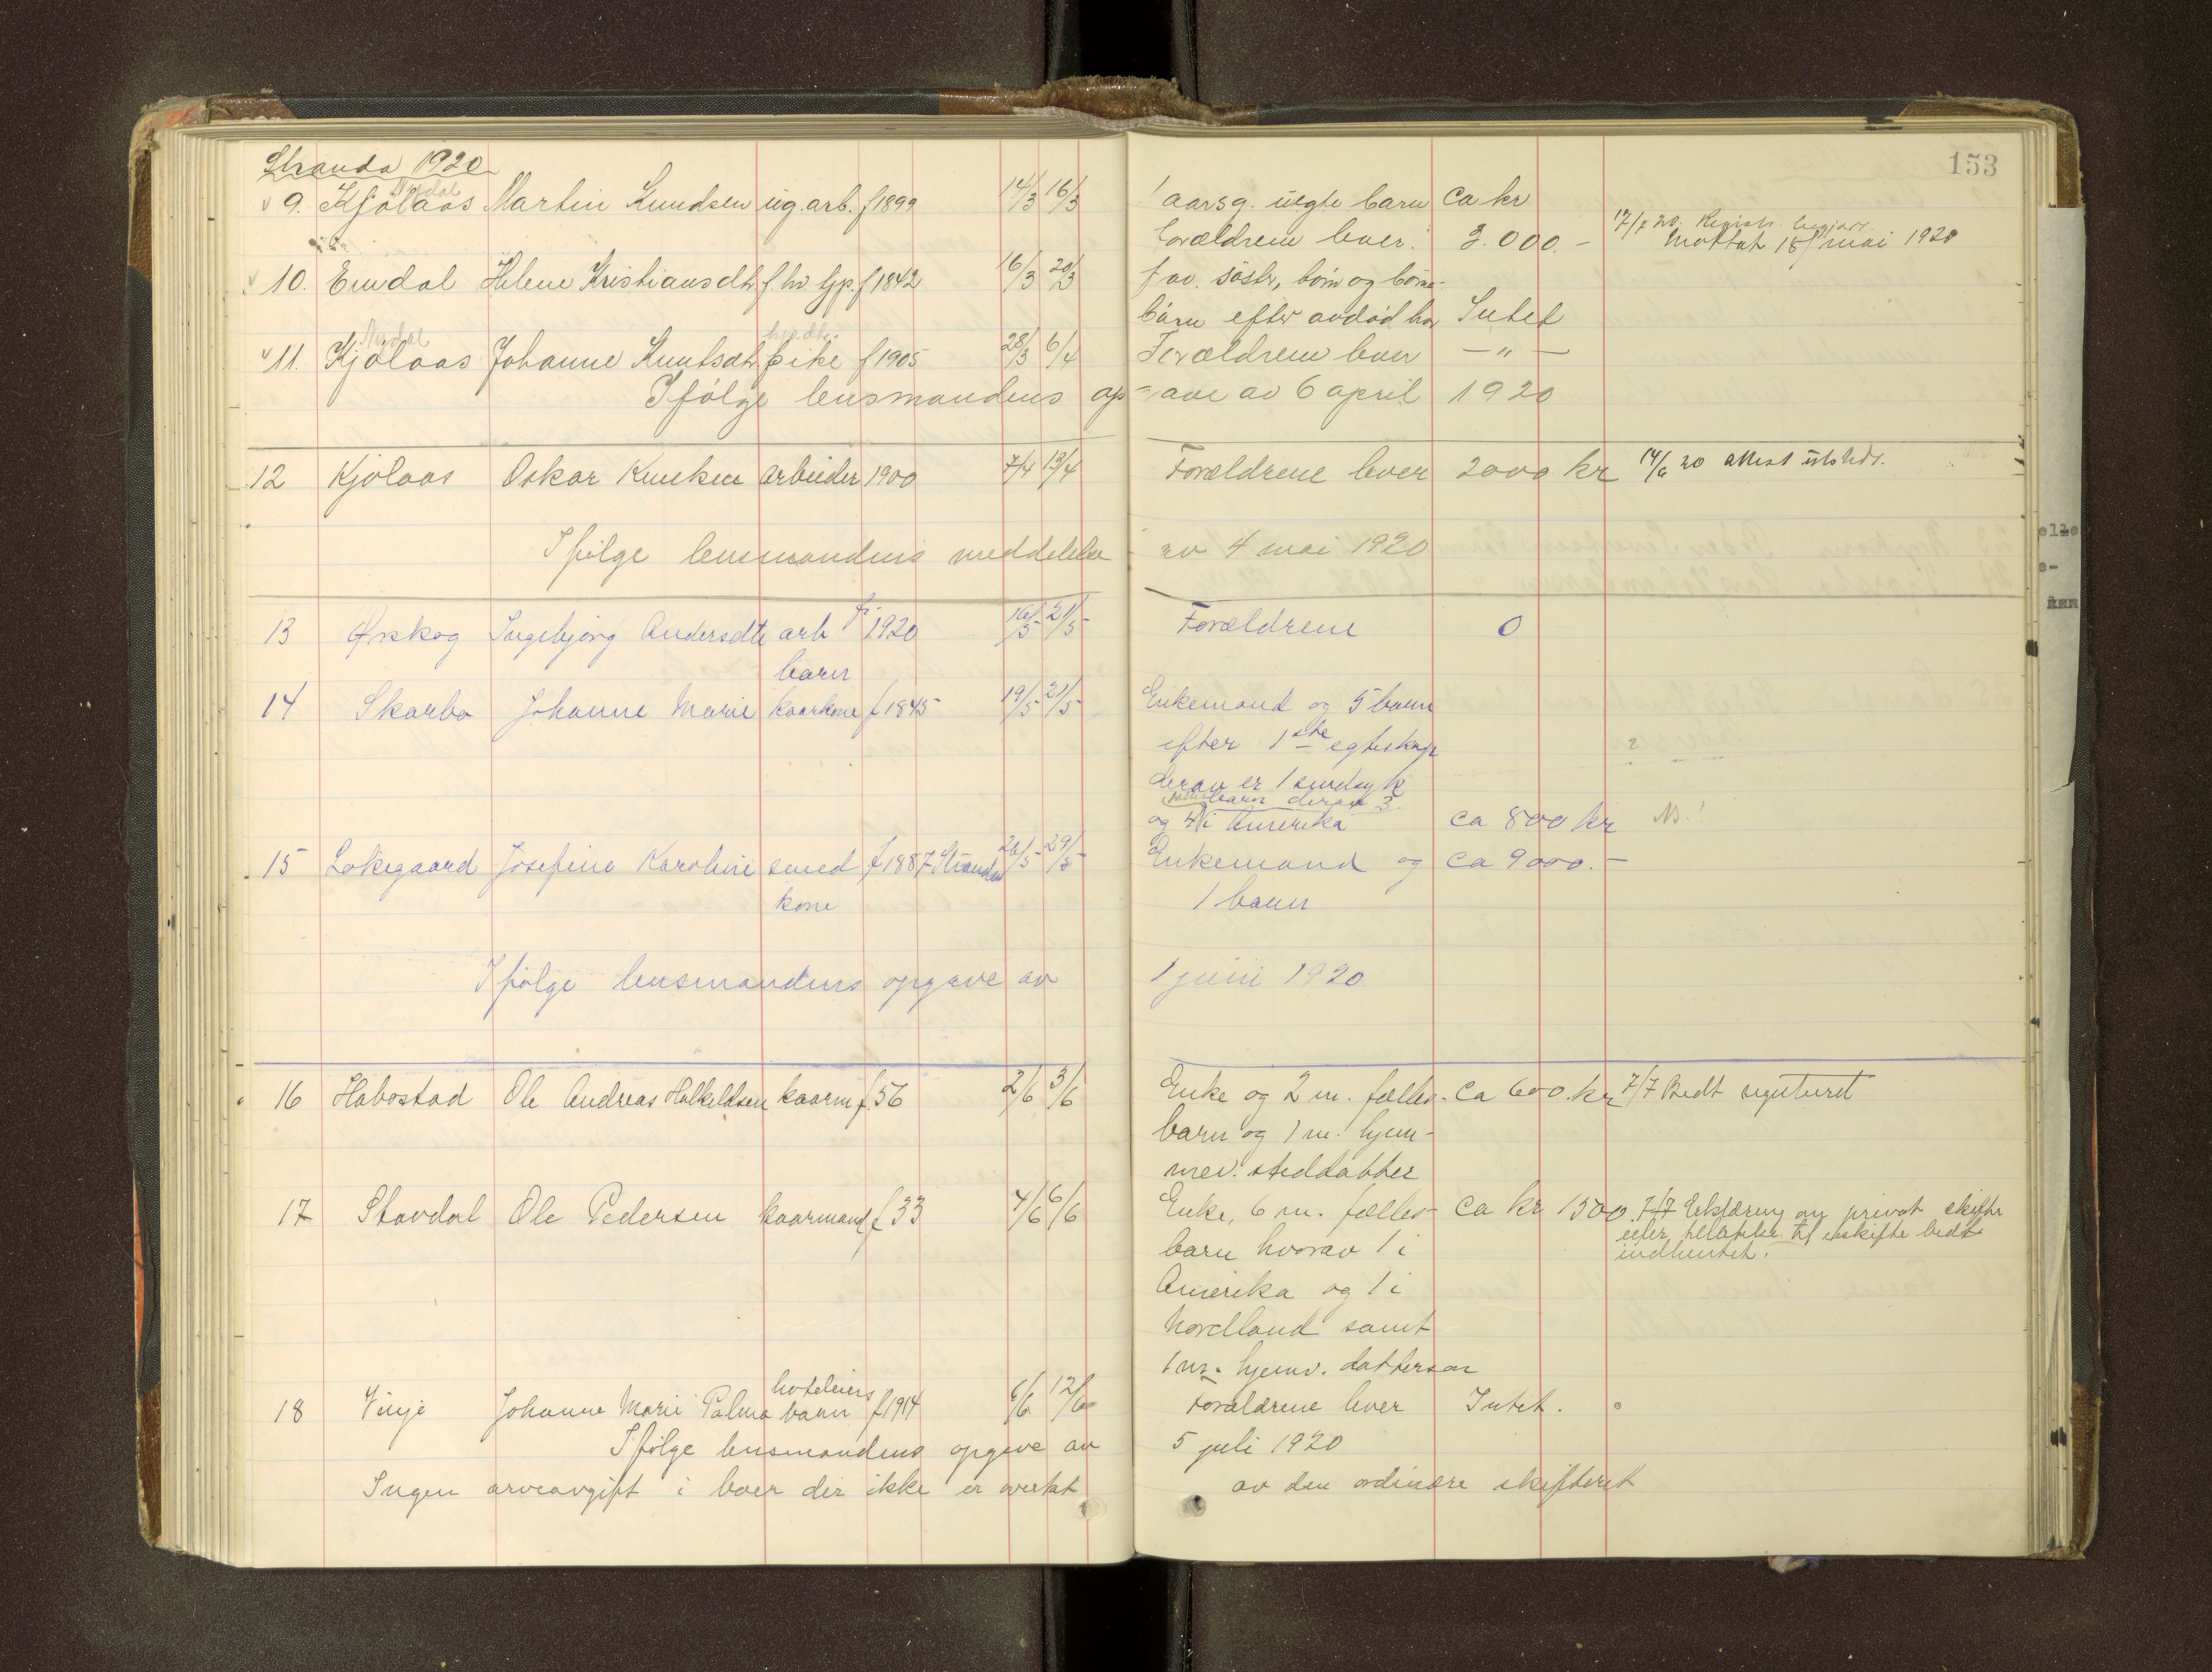 153
Stranda 1920
v 9. Kjølaas Nydal Martin Knudsen ug. arb. f 1899 14/3 16/3 1 aarsg. uegte barn ca kr
forældrene lever. 3.000.- 17/5 20. Registr. begjært. Mottat 18/ mai 1920
v 10. Emdal Helene Kristiansdtr f. hv. hjp. f 1842 16/3 20/3 f av. søstr, børn og børne-
børn efter avdød bror Intet
v 11. Kjølaas Nydal Johanne Knutsdtr pike f 1905 28/3 6/4 Forældrene lever — " —
Ifølge lensmandens opgave av 6 april 1920
12 Kjølaas Oskar Knutsen arbeider 1900 7/4 13/4 Forældrene lever 2000 kr 14/6 20 attest utstedt.
Ifølge lensmandens meddelelse av 4 mai 1920
13 Ørskog Ingebjørg Andersdtr arb f. 1920 16/5 21/5 Forældrene 0
barn
14 Skarbø Johanne Marie kaarkone f 1845 19/5 21/5 Enkemand og 5 barn
efter 1ste egteskap
?
derav er 1 sindsyk
barn derav 3
og 4 i Amerika ca 800 kr No!
15 Løkegaard Josefine Karoline smed f 1887 Stranden 26/5 29/5 Enkemand og ca 9000.-
kone 1 barn
Ifølge lensmandens opgave av 1 juni 1920
16 Habostad Ole Andreas Halkeldsen kaarm f. 56 2/6 3/6 Enke og 2 m. fælles- ca 600.kr 7/7 Bedt registreret
barn og 1 m. hjem-
mev. steddatter
17 Stavdal Ole Pedersen kaarmand f 33 4/6 6/6 Enke, 6 m. fælles- ca kr 1500. 7/7 Erklæring om privat skifte
barn hvorav 1 i eller tilladelse til uskifte bedt
indhentet.
Amerika og 1 i
Nordland samt
1 m. hjemv. datterson
18 Vinje Johanne Marie Palma hoteleiers barn f 1914 6/6 12/6 Forældrene lever Intet.
Ifølge lensmandens opgave av 5 juli 1920
Ingen arveavgift i boer der ikke er averkt av den ordinære skifteret
elle
e-